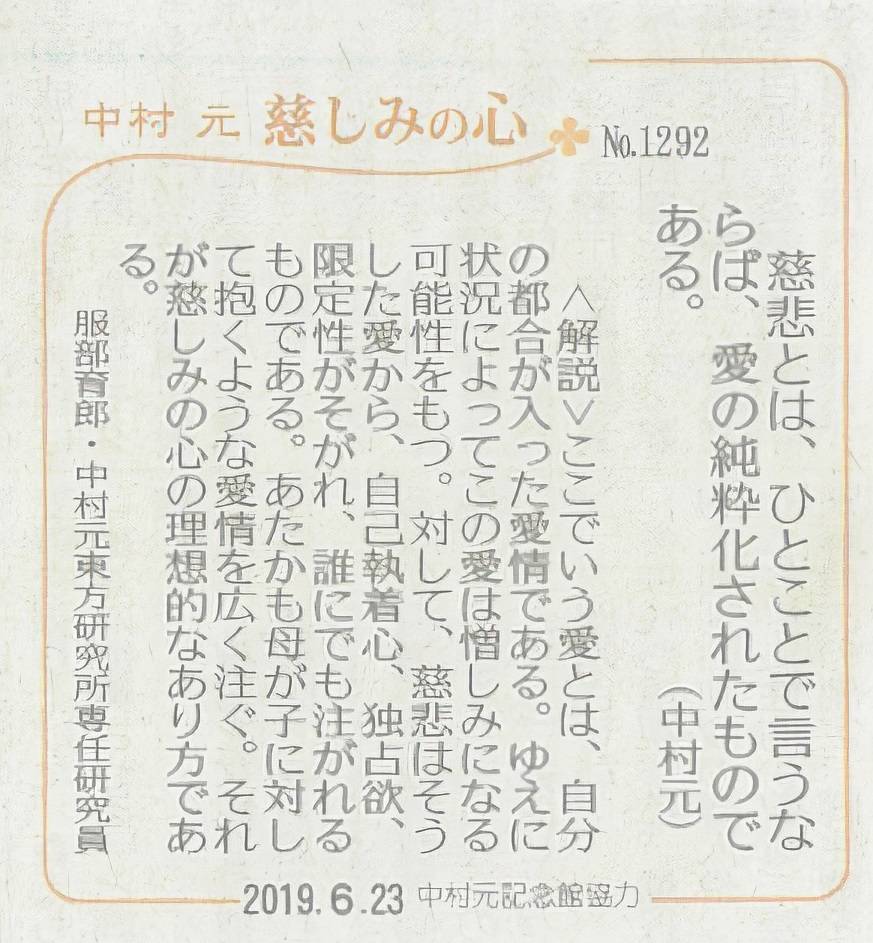 中村 元 慈しみの心 No.1292
慈悲とは、ひとことで言うな
らば、愛の純粋化されたもので
ある。 （中村元）
＜解説＞ここでいう愛とは、自分
の都合が入った愛情である。ゆえに
状況によってこの愛は憎しみになる
可能性をもつ。対して、慈悲はそう
した愛から、自己執着心、独占欲、
限定性がそがれ、誰にでも注がれる
ものである。あたかも母が子に対し
て抱くような愛情を広く注ぐ。それ
が慈しみの心の理想的なあり方であ
る。
服部育郎・中村元東方研究所専任研究員
2019.6.23 中村元記念館協力